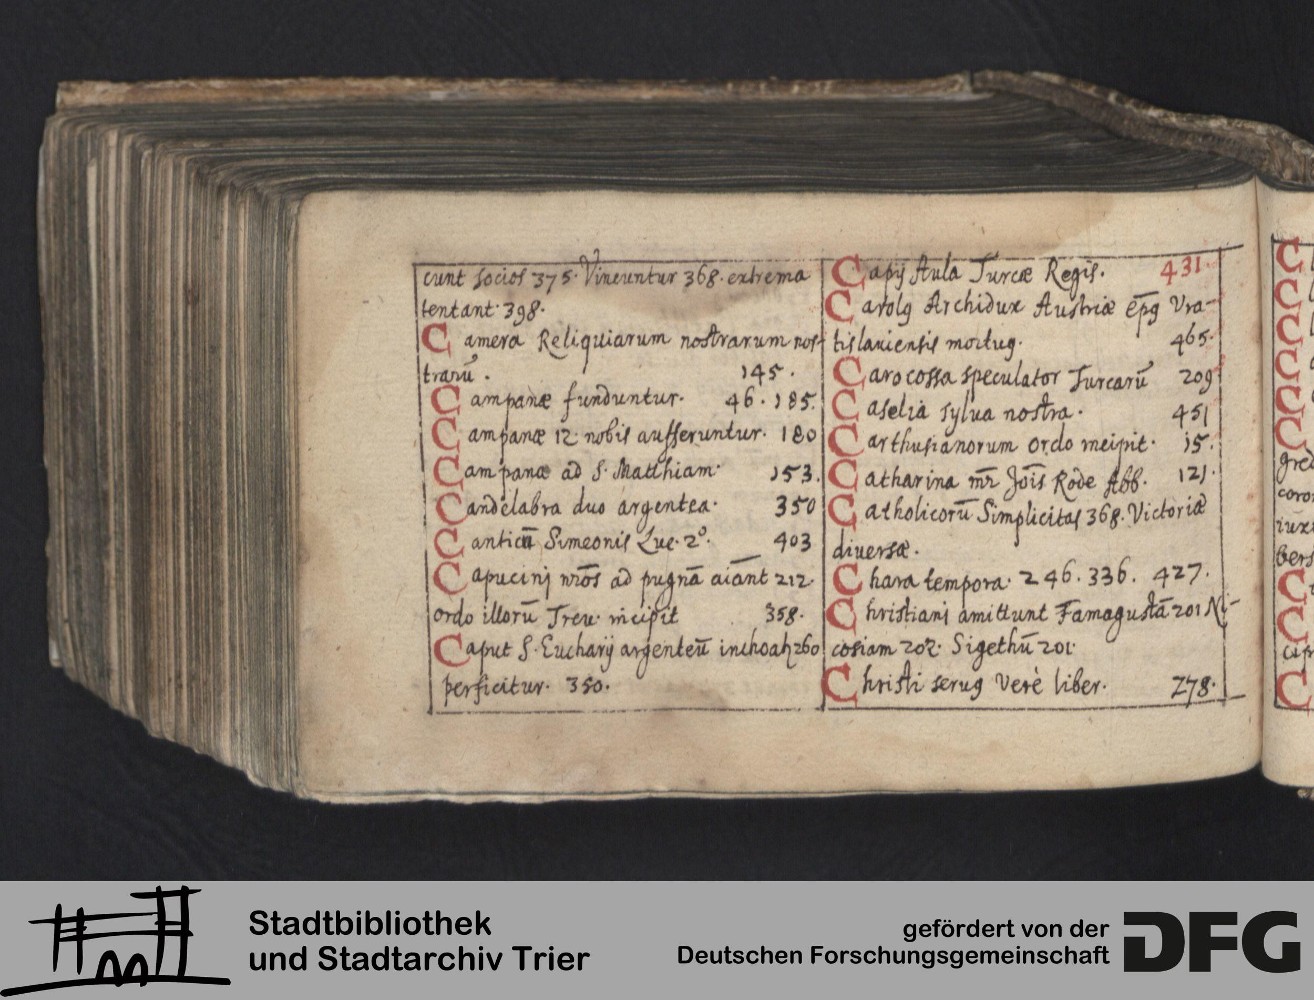 cunt socios 375. Vincuntur 368. extrema
tentant. 398.
Camera Reliquiarum nostrarum nos-
trarū. 145.
Campanæ funduntur. 46. 185.
Campanæ 12 nobis aufferuntur. 180
Campanæ ad S. Matthiam. 153.
Candelabra duo argentea. 350
Canticū Simeonis Luc. 2º. 403
Capucinj nrōs ad pugnā aīant 212.
ordo illorū Trev. incipit 358.
Caput S. Eucharij argenteū inchoat 260
perficitur. 350.
Capij Aula Turcæ Regis. 431.
Carolꝯ Archidux Austriæ ep̄ꝯ Vra-
tislaviensis mortuꝯ. 465.
Carocossa speculator Turcarū 209
Caselia sylva nostra. 451
Carthusianorum ordo incipit. 15.
Catharina mr̄ Jōis Rode Abb. 121.
Catholicorū Simplicitas 368. Victoriæ
diversæ.
Chara tempora. 246. 336. 427.
Christianj amittunt Famagustā 201 Ni-
cosiam 202. Sigethū 201.
Christi servꝯ verè liber. 278.
C
C
C
C
C
C
C
C
C
Stadtbibliothek
und Stadtarchiv Trier
gefördert von der
Deutschen Forschungsgemeinschaft
DFG